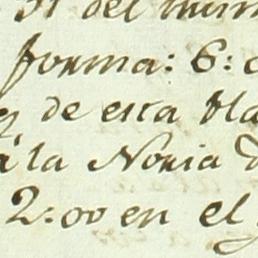 del
forma: 6: c
de esta Pla
a la Noria d
2:00 en el